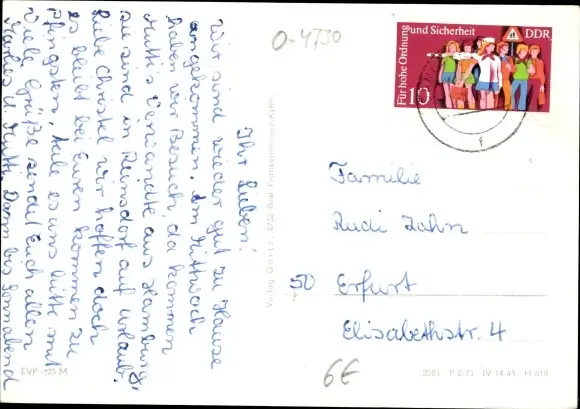 O-4730
Für hohe Ordnung und Sicherheit
DDR
10
Ihr Lieben!
Wir sind wieder gut zu Hause
angekommen. Am Mittwoch
haben wir Besuch, da kommen
Mutti's Verwandte aus Hamburg,
sie sind in Reinsdorf auf Urlaub.
Liebe Christel wir hoffen doch
es bleibt bei Euren kommen zu
Pfingsten, teile es uns bitte mit
Viele Grüße sendet Euch allen
u. Mutti. Dann bis Sonnabend
Verlag Garitz, 4732 Bad Frankenhausen/Kyffh.
Familie
Rudi Zahn
50 Erfurt
Elisabethstr. 4
6€
EVP M
2081 P 2/73 IV-14-45 H 618